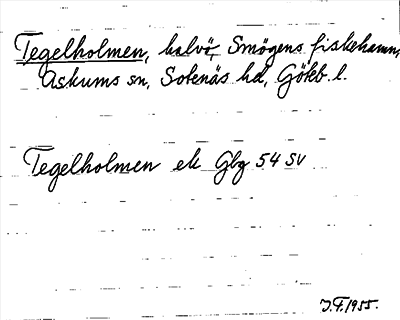 Tegelholmen, halvö, Smögens fiskehamn,
Askums sn, Sotenäs hd, Göteb. l.
Tegelholmen ek Gbg 54 SV
J.F. 1955.